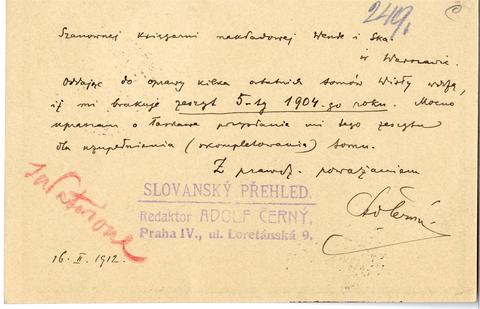 249.
Szanownej Księgarni nakładowej Wende i Ska
w Warszawie.
Oddając do oprawy kilka ostatnich tomów Wisły widzę,
iż mi brakuje zeszyt 5-ty 1904-go roku. Mocno
upraszam o łaskawe przysłanie mi tego zeszytu
dla uzupełnienia (skompletowania) tomu.
Z prawdz. poważaniem
SLOVANSKÝ PŘEHLED.
Redaktor ADOLF ČERNÝ,
Praha IV., ul. Loretánská 9.
Ad Černý
16. II. 1912.